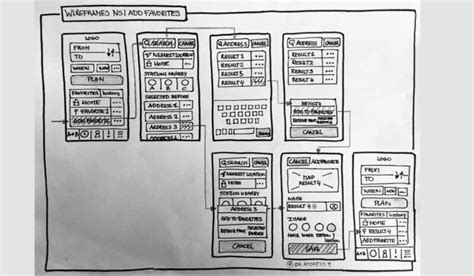 WIREFRAMES NS | ADD FAVORITES
LOGO
FROM
TO
WHEN NOW
PLAN
FAVORITES history
HOME
FAVORITE 1
ADD FAVORITE
A+B
SEARCH CANCEL
NEAREST LOCATION
HOME
STATIONS NEARBY
SELECTED BEFORE
ADDRESS 1
ADDRESS 2
ADDRESS 3
ADDRESS 4
ADDRESS CANCEL
RESULT 1
RESULT 2
RESULT 3
RESULT 4
ADDRESS CANCEL
RESULT 1
RESULT 2
RESULT 3
RESULT 4
RESULT 4
ADD TO FAVORITES
CANCEL
SEARCH CANCEL
NEAREST LOCATION
HOME
STATION NEARBY
ADDRESS 3
ADD TO FAVORITES
CANCEL
CANCEL ADD FAVORITE
MAP
RESULT 4
NAME
RESULT 4
IMAGE
HOME WORK STATION
SAVE
OR ADDRESS 3
LOGO
FROM
TO
WHEN NOW
PLAN
FAVORITES history
HOME
RESULT 4
ADD FAVORITE
A+B